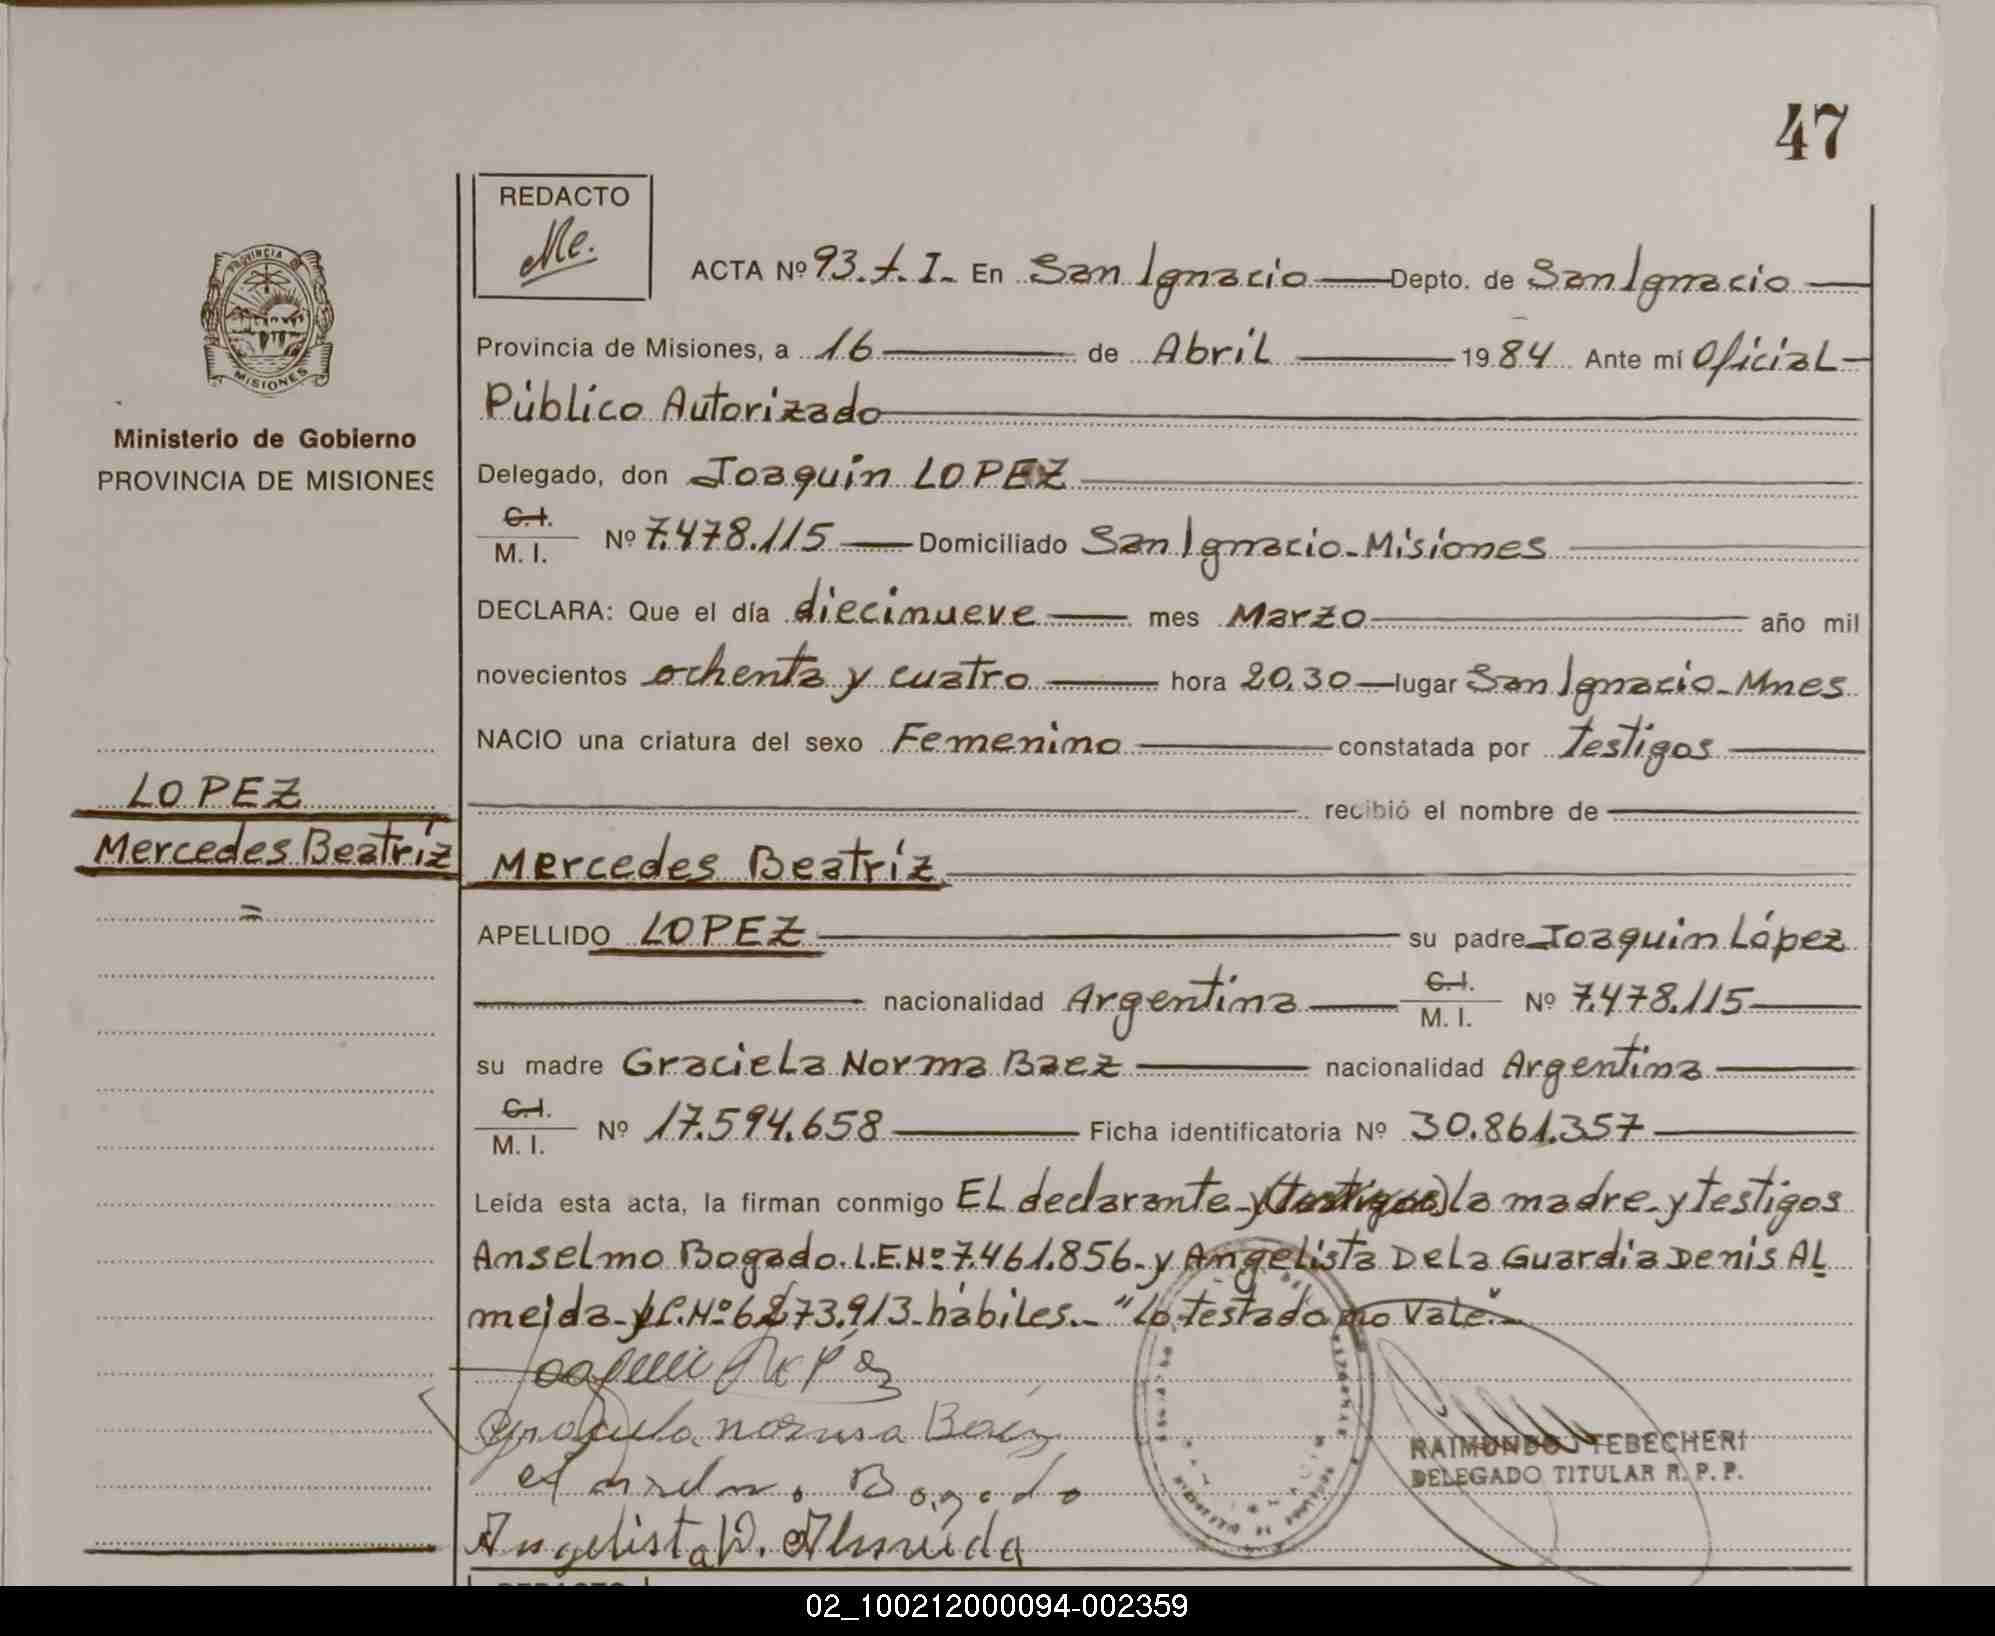 47
REDACTO
Me.
PROVINCIA DE
MISIONES
Ministerio de Gobierno
PROVINCIA DE MISIONES
LOPEZ
Mercedes Beatríz
ACTA Nº 93.t.I. En San Ignacio Depto. de San Ignacio
Provincia de Misiones, a 16 de Abril 1984 Ante mí Oficial
Público Autorizado
Delegado, don Joaquin LOPEZ
C.I.
M. I. Nº 7.478.115 Domiciliado San Ignacio-Misiones
DECLARA: Que el día diecinueve mes Marzo año mil
novecientos ochenta y cuatro hora 20.30 lugar San Ignacio-Mnes
NACIO una criatura del sexo Femenino constatada por testigos
recibió el nombre de
Mercedes Beatríz
APELLIDO LOPEZ su padre Joaquin López
nacionalidad Argentina C.I. M. I. Nº 7.478.115
su madre Graciela Norma Baez nacionalidad Argentina
C.I.
M. I. Nº 17.594.658 Ficha identificatoria Nº 30.861.357
Leída esta acta, la firman conmigo El declarante y (testigos) la madre y testigos
Anselmo Bogado. L.E.Nº 7.461.856. y Angelista De La Guardia Denis Al
meida L.C.Nº 6. 73.913 hábiles.- "Lo testado no vale".
Joaquin
Graciela norma Baez
Bogado
Angelista D. Almeida
RAIMUNDO J TEBECHERI
DELEGADO TITULAR R. P. P.
REDACTO
02_100212000094-002359